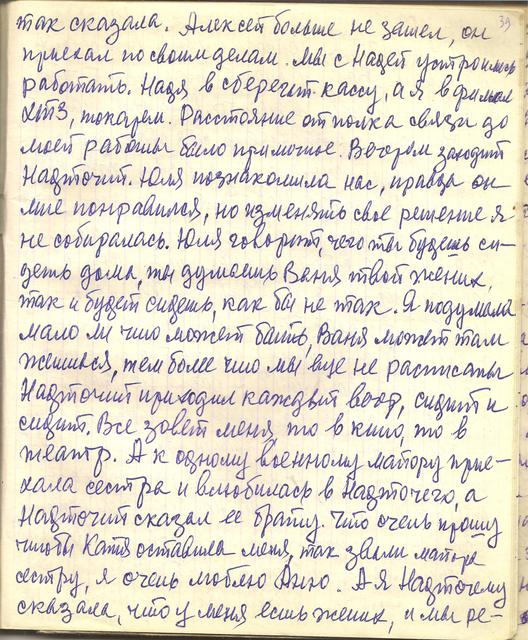 39
так сказала. Алексей больше не зашел, он
приехал по своим делам. Мы с Надей устроились
работать. Надя в сберегат. кассу, а я в филиал
ХТЗ, токарем. Расстояние от полка связи до
моей работы было приличное. Вечером заходит
Надточий. Юля познакомила нас, правда он
мне понравился, но изменять свое решение я
не собиралась. Юля говорит, чего ты будешь си-
деть дома, ты думаешь Ваня твой жених,
так и будет сидеть, как бы не так. Я подумала
мало ли что может быть, Ваня может там
женился, тем более что мы еще не расписаны
Надточий приходил каждый вечер, сидит и
сидит. Все зовет меня, то в кино, то в
театр. А к одному военному майору прие-
хала сестра и влюбилась в Надточего, а
Надточий сказал ее брату. Что очень прошу
чтобы Катя оставила меня, так звали майора
сестру, я очень люблю Аню. А я Надточему
сказала, что у меня есть жених, и мы ре-